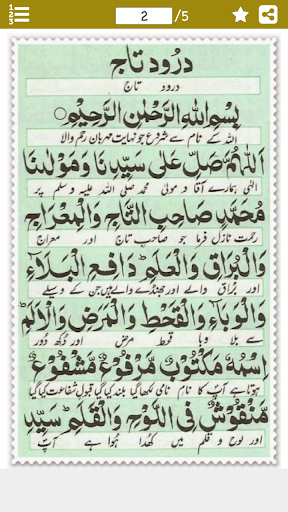 2 /5
درود تاج
درود تاج
بِسْمِ اللهِ الرَّحْمٰنِ الرَّحِیْمِ
اللہ کے نام سے شروع جو نہایت مہربان رحم والا
اَللّٰهُمَّ صَلِّ عَلٰی سَیِّدِنَا وَمَوْلٰىنَا
الٰہی ہمارے آقا و مولیٰ محمد صلی اللہ علیہ و سلم پر
مُحَمَّدٍ صَاحِبِ التَّاجِ وَالْمِعْرَاجِ
رحمت نازل فرما جو صاحب تاج اور معراج
وَالْبُرَاقِ وَالْعَلَمِ ؕ دَافِعِ الْبَلَآءِ
اور براق والے اور جھنڈے والے ہیں جن کے وسیلے
وَالْوَبَآءِ وَالْقَحْطِ وَالْمَرَضِ وَالْاَلَمِ ؕ
سے بلا وبا قحط مرض اور دکھ دور
اِسْمُهٗ مَكْتُوْبٌ مَّرْفُوْعٌ مَّشْفُوْعٌ
ہوتا ہے آپ کا نام نامی لکھا گیا بلند کیا گیا قبول شفاعت کیا گیا
مَّنْقُوْشٌ فِی اللَّوْحِ وَالْقَلَمِ ؕ سَیِّدِ
اور لوح و قلم میں کھدا ہوا ہے آپ